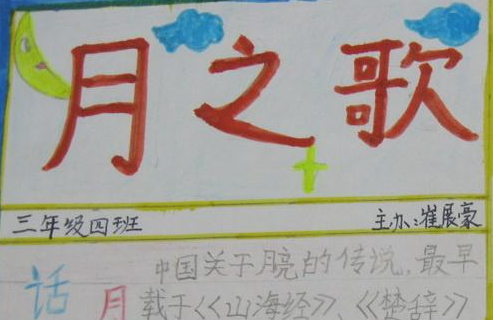 月之歌
三年级四班
主办:崔展豪
话
月
中国关于月亮的传说,最早
载于《《山海经》》、《《楚辞》》